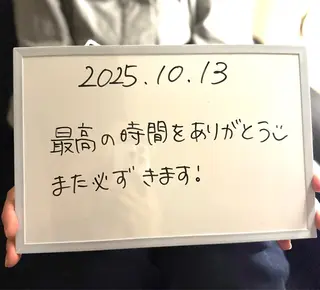 2025.10.13
最高の時間をありがとう
また必ずきます!